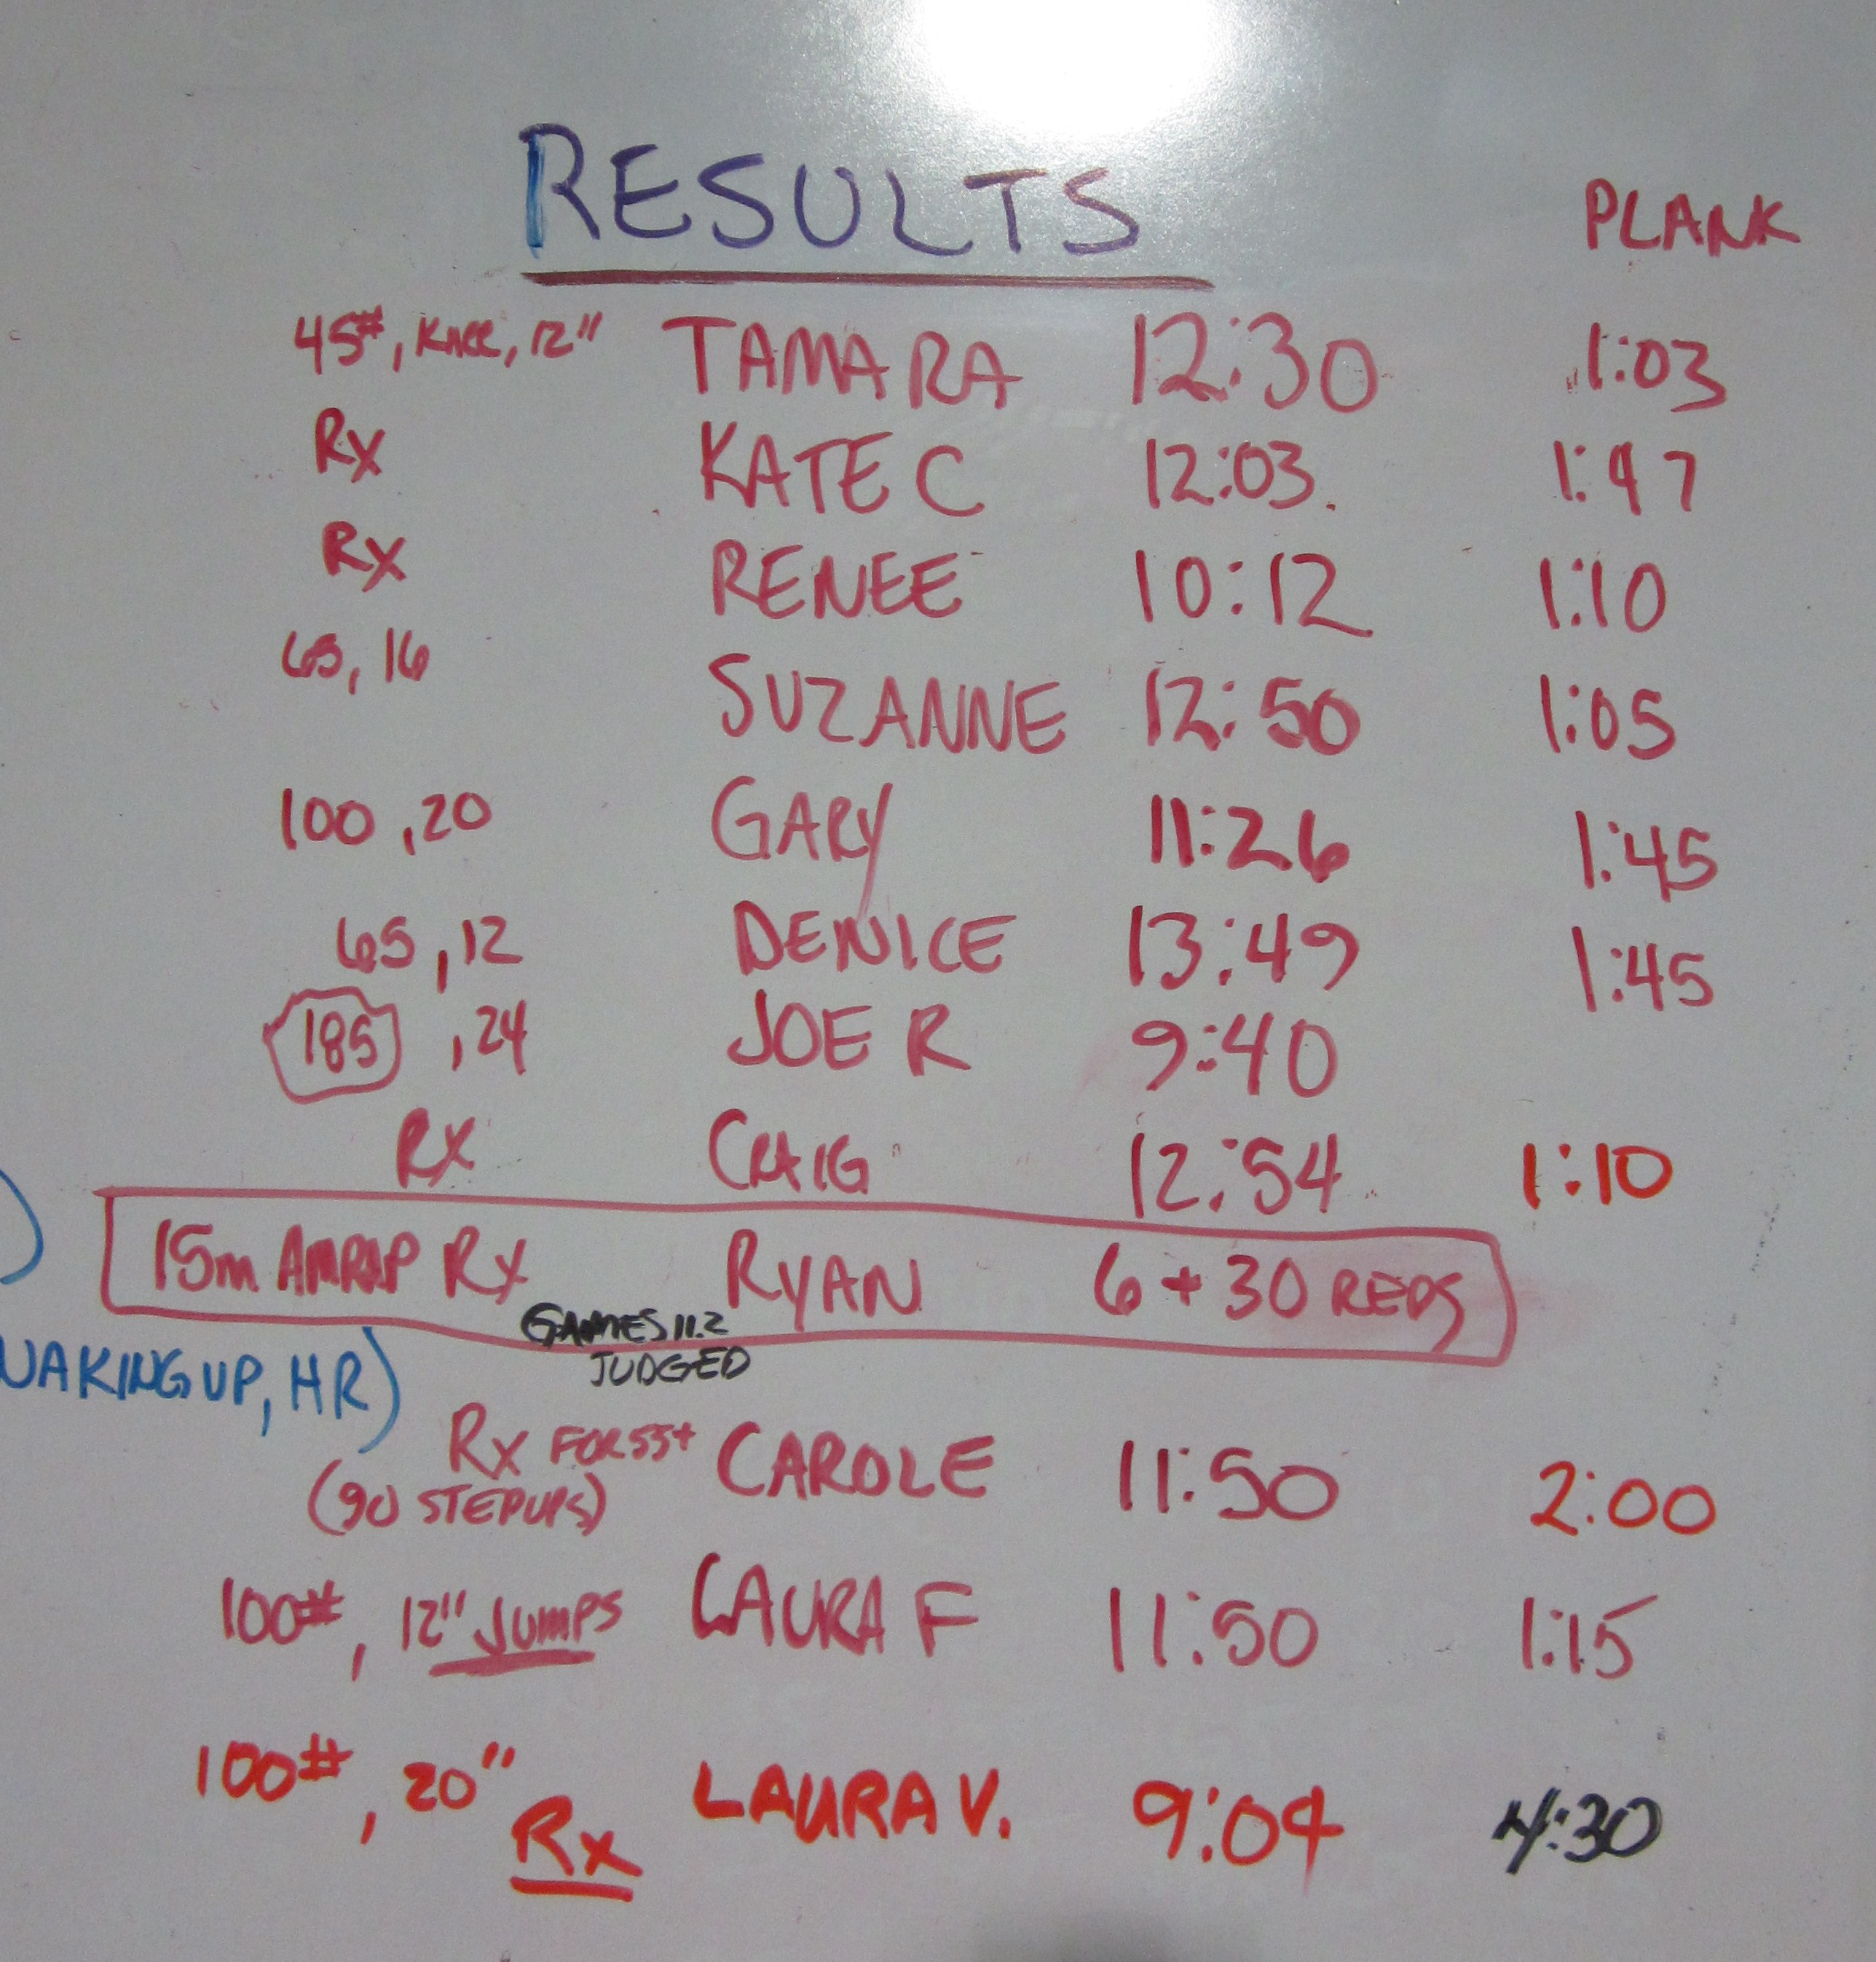 RESULTS
PLANK
45#, KNEE, 12" TAMARA 12:30 1:03
Rx KATE C 12:03 1:47
Rx RENEE 10:12 1:10
65, 16 SUZANNE 12:50 1:05
100, 20 GARY 11:26 1:45
65, 12 DENICE 13:49 1:45
185, 24 JOE R 9:40
RX CRAIG 12:54 1:10
15m AMRAP Rx RYAN 6 + 30 REPS
GAMES 11.2
JUDGED
WAKING UP, HR)
Rx FOR 55+ CAROLE 11:50 2:00
(90 STEPUPS)
100#, 12" JUMPS LAURA F 11:50 1:15
100#, 20" Rx LAURA V. 9:04 4:30